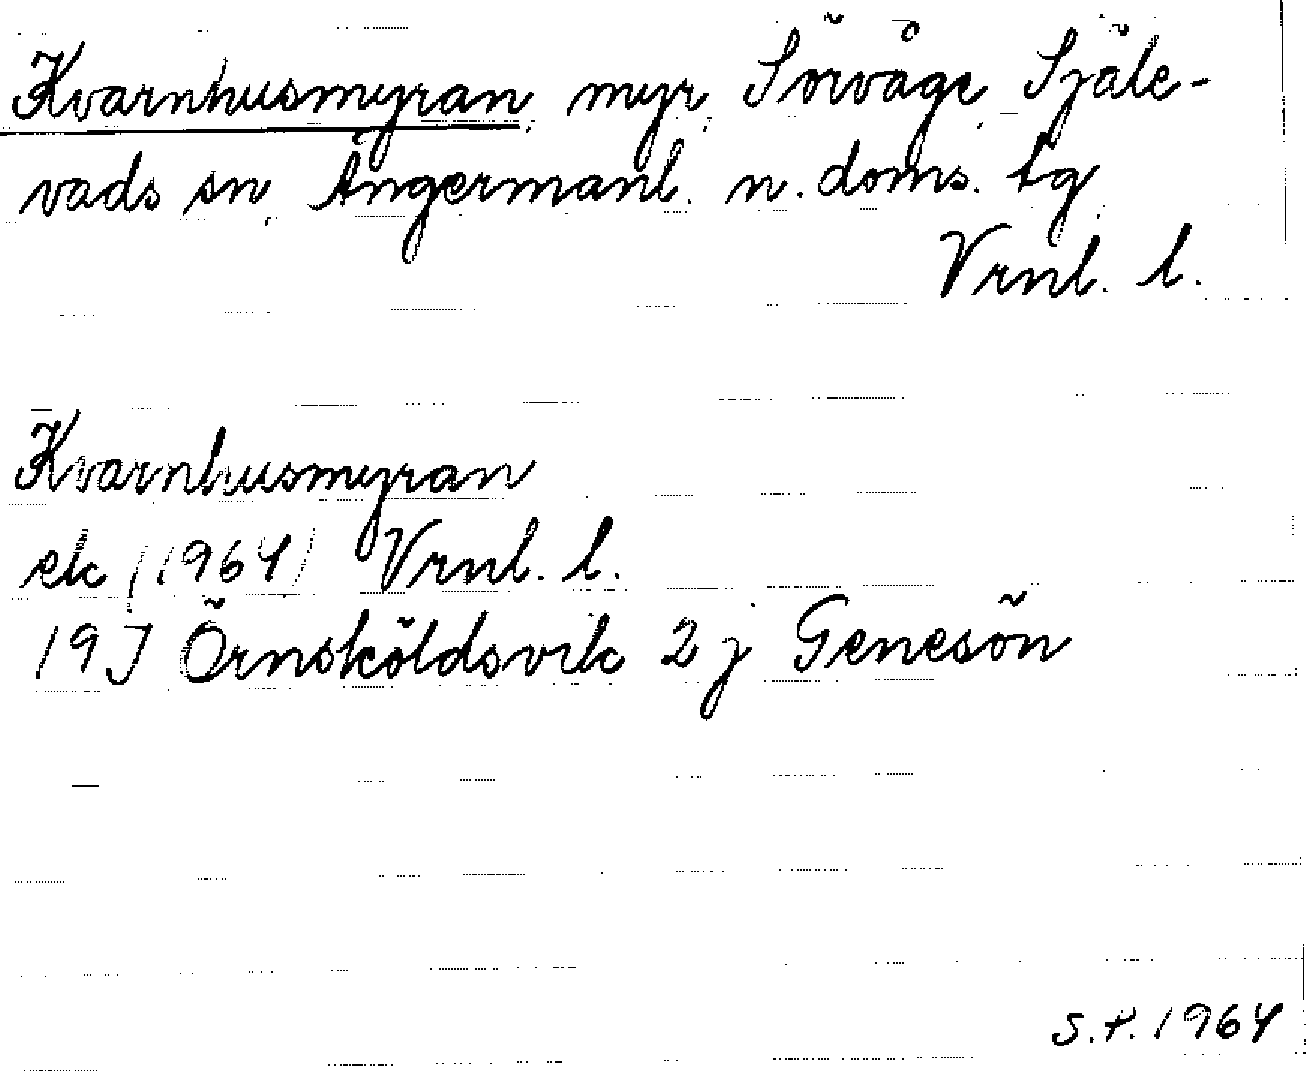 Kvarnhusmyran, myr, Sörvåge, Själe-
vads sn, Ångermanl. n. doms. tg,
Vrnl. l.
Kvarnhusmyran
ek (1964) Vrnl. l.
19J Örnsköldsvik 2 j Genesön
S.P. 1964